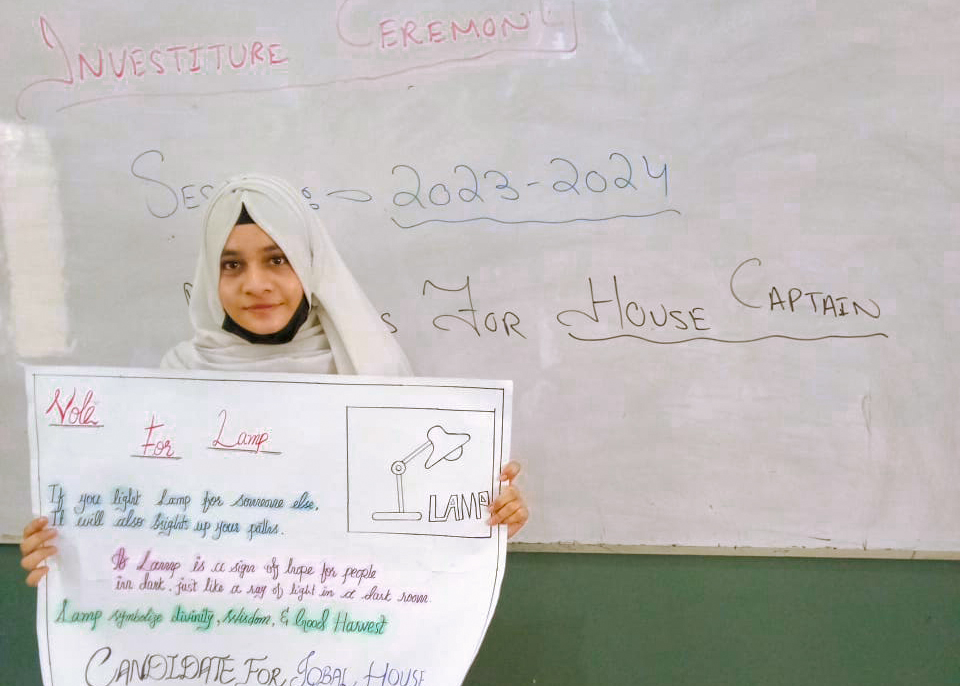 INVESTITURE CEREMONY
2023-2024
FOR HOUSE CAPTAIN
Vote
For Lamp
If you light Lamp for someone else,
It will also brights up your paths.
Lamp is a sign of hope for people
in dark. just like a ray of light in a dark room
Lamp symbolize divinity, Wisdom, & Good Harvest
CANDIDATE FOR IQBAL HOUSE
LAMP